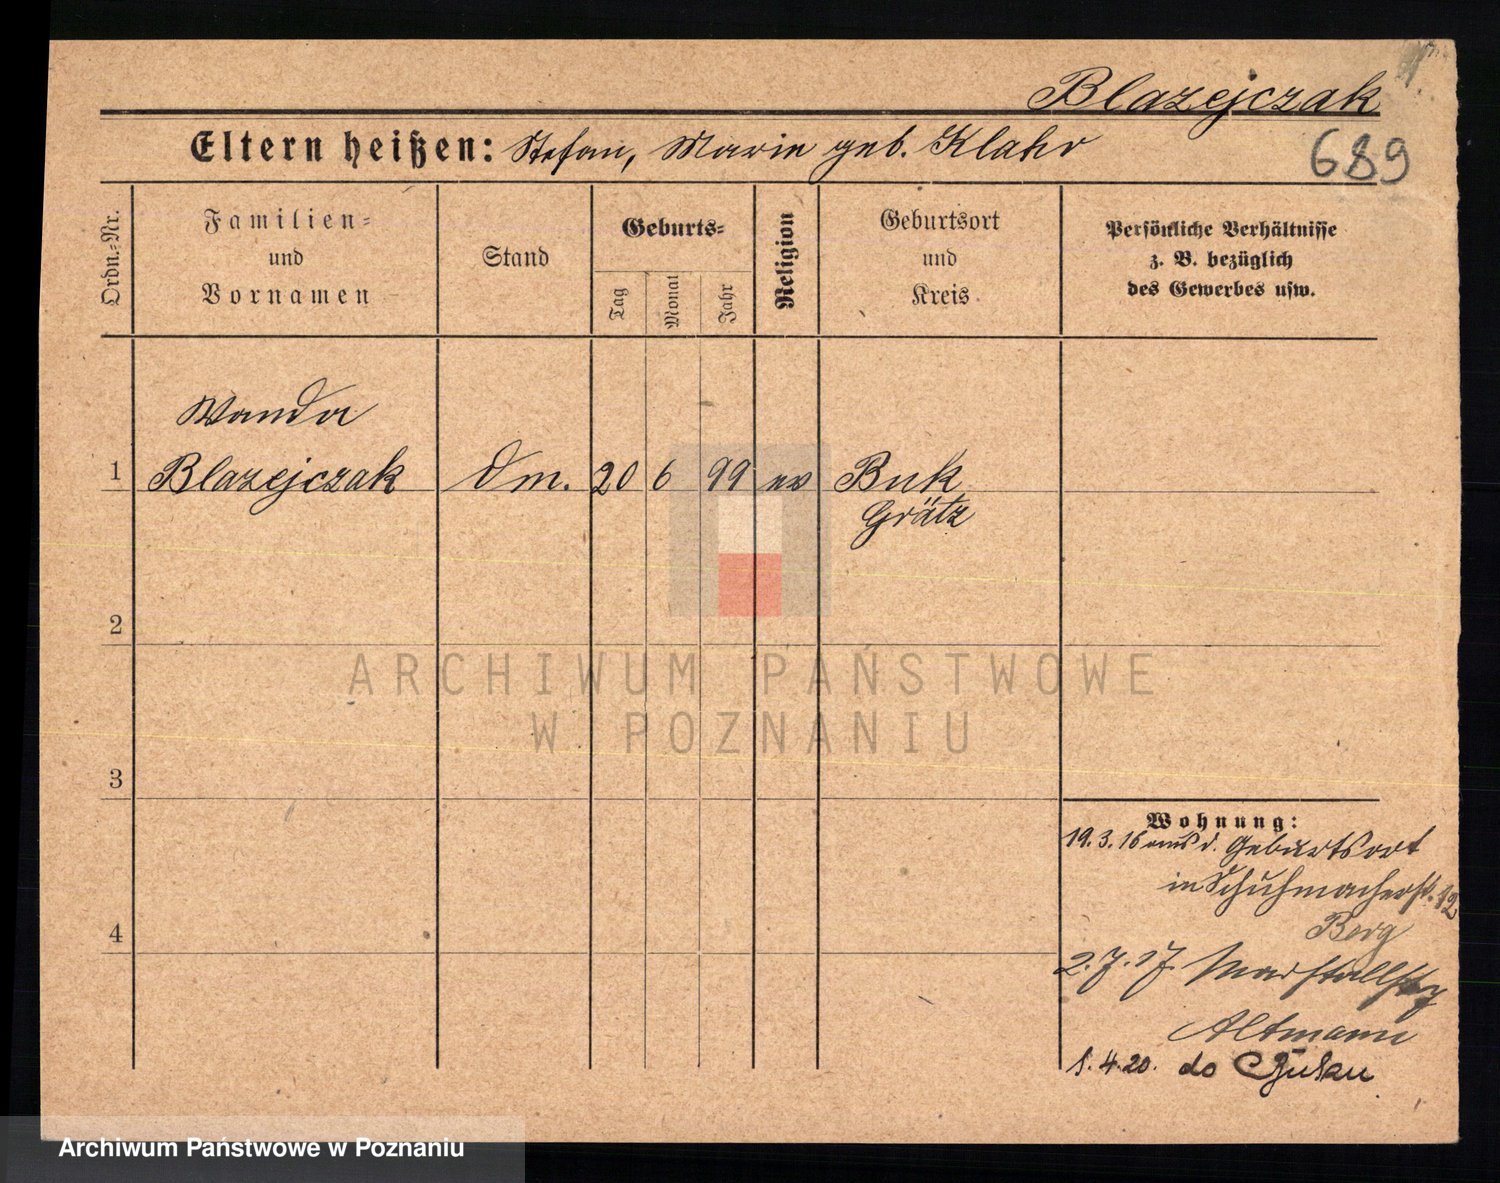 Blazejczak
689
Eltern heißen: Stefan, Marie geb. Klahr
Ordn.=Nr.
Familien=
und
Vornamen
Stand
Geburts=
Tag
Monat
Jahr
Religion
Geburtsort
und
Kreis
Persönliche Verhältnisse
z. B. bezüglich
des Gewerbes usw.
Wanda
1 Blazejczak Dm. 20 6 99 ev Buk
Grätz
2
3
4
Wohnung:
19.3.16 aus d. Geburtsort
in Schuhmacherst. 12
Berg
2.7.17 Marstallstr
Altmann
1.4.20. do
ARCHIWUM PAŃSTWOWE
W POZNANIU
Archiwum Państwowe w Poznaniu